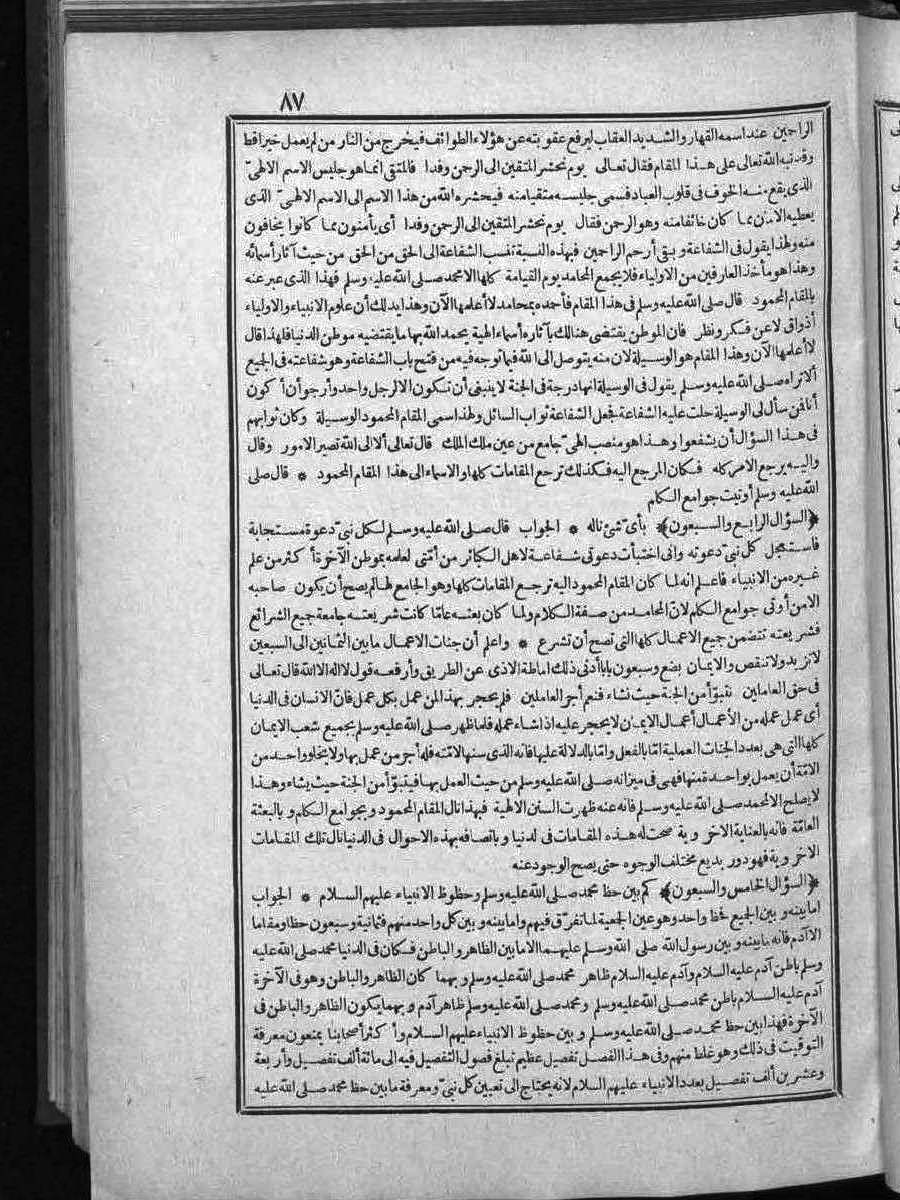 ٨٧
الراحمين عند اسمه القهار والشديد العقاب ليرفع عقوبته عن هؤلاء الطوائف فيخرج من النار من لم يعمل خيرا قط
وقد نبه الله تعالى على هذا المقام فقال تعالى يوم نحشر المتقين الى الرحمن وفدا فالمتقى انما هو جليس الاسم الالهىّ
الذى يقع منه الخوف فى قلوب العباد فسمى جليسه متقيا منه فيحشره الله من هذا الاسم الى الاسم الالهىّ الذى
يعطيه الامان مما كان خائفا منه وهو الرحمن فقال يوم نحشر المتقين الى الرحمن وفدا أى يأمنون مما كانوا يخافون
منه ولهذا يقول فى الشفاعة وبقى أرحم الراحمين فبهذه النسبة تنسب الشفاعة الى الحق من الحق من حيث آثار أسمائه
وهذا هو مأخذ العارفين من الاولياء فلا يجمع المحامد يوم القيامة كلها الا محمد صلى الله عليه وسلم فهذا الذى عبر عنه
بالمقام المحمود قال صلى الله عليه وسلم فى هذا المقام فأحمده بمحامد لا أعلمها الآن وهذا يدلك أن علوم الانبياء والاولياء
أذواق لا عن فكر ونظر فان الموطن يقتضى هنالك بآثاره أسماء الهية يحمد الله بها ما يقتضيه موطن الدنيا فلهذا قال
لا أعلمها الآن وهذا المقام هو الوسيلة لان منه يتوصل الى الله فيما توجه فيه من فتح باب الشفاعة وهو شفاعته فى الجميع
ألا تراه صلى الله عليه وسلم يقول فى الوسيلة انها درجة فى الجنة لا ينبغى أن تكون الا لرجل واحد وأرجو أن أكون
أنا فمن سأل لى الوسيلة حلت عليه الشفاعة فجعل الشفاعة ثواب السائل ولهذا سمى المقام المحمود الوسيلة وكان ثوابهم
فى هذا السؤال أن يشفعوا وهذا هو منصب الهىّ جامع من عين ملك الملك قال تعالى ألا الى الله تصير الامور وقال
واليه يرجع الامر كله فكان المرجع اليه فكذلك ترجع المقامات كلها والاسماء الى هذا المقام المحمود * قال صلى
الله عليه وسلم أوتيت جوامع الكلم
﴿السؤال الرابع والسبعون﴾ بأىّ شئ ناله * الجواب قال صلى الله عليه وسلم لكل نبىّ دعوة مستجابة
فاستعجل كل نبىّ دعوته وانى اختبأت دعوتى شفاعة لاهل الكبائر من أمتى لعلمه بموطن الآخرة أكثر من علم
غيره من الانبياء فاعلم انه لما كان المقام المحمود اليه ترجع المقامات كلها وهو الجامع لها لم يصح أن يكون صاحبه
الا من أوتى جوامع الكلم لانّ المحامد من صفة الكلام ولما كان بعثه عامّا كانت شريعته جامعة جميع الشرائع
فشريعته تتضمن جميع الاعمال كلها التى تصح أن تشرع * واعلم أن جنات الاعمال ما بين الثمانين الى السبعين
لا تزيد ولا تنقص والايمان بضع وسبعون بابا أدنى ذلك اماطة الاذى عن الطريق وأرفعه قول لا اله الا الله قال تعالى
فى حق العاملين نتبوّأ من الجنة حيث نشاء فنعم أجر العاملين فلم يحجر بهذا لمن عمل بكل عمل فانّ الانسان فى الدنيا
أى عمل عمله من الأعمال أعمال الايمان لا يحجر عليه اذا شاء عمله فلما ظهر صلى الله عليه وسلم بجميع شعب الايمان
كلها التى هى بعدد الجنات العملية امّا بالفعل وامّا بالدلالة عليها فانه الذى سنها لامّته فله أجر من عمل بها ولا يخلو واحد من
الامّة أن يعمل بواحدة منها فهى فى ميزانه صلى الله عليه وسلم من حيث العمل بها فيتبوّأ من الجنة حيث يشاء وهذا
لا يصلح الا لمحمد صلى الله عليه وسلم فانه عنه ظهرت السنن الالهية فبهذا نال المقام المحمود وبجوامع الكلم وبالبعثة
العامّة فانه بالعناية الاخروية صحت له هذه المقامات فى الدنيا وباتصافه بهذه الاحوال فى الدنيا نال تلك المقامات
الاخروية فهو دور بديع مختلف الوجوه حتى يصح الوجود عنه
﴿السؤال الخامس والسبعون﴾ كم بين حظ محمد صلى الله عليه وسلم وحظوظ الانبياء عليهم السلام * الجواب
اما بينه وبين الجميع فحظ واحد وهو عين الجمعية لما تفرّق فيهم واما بينه وبين كل واحد منهم فثمانية وسبعون حظا ومقاما
الا آدم فانه ما بينه وبين رسول الله صلى الله وسلم عليهما الا ما بين الظاهر والباطن فكان فى الدنيا محمد صلى الله عليه
وسلم باطن آدم عليه السلام وآدم عليه السلام ظاهر محمد صلى الله عليه وسلم وبهما كان الظاهر والباطن وهو فى الآخرة
آدم عليه السلام باطن محمد صلى الله عليه وسلم ومحمد صلى الله عليه وسلم ظاهر آدم وبهما يكون الظاهر والباطن فى
الآخرة فهذا بين حظ محمد صلى الله عليه وسلم وبين حظوظ الانبياء عليهم السلام وأكثر أصحابنا يمنعون معرفة
التوقيت فى ذلك وهو غلط منهم وفى هذا الفصل تفصيل عظيم تبلغ فصول التفصيل فيه الى مائة ألف تفصيل وأربعة
وعشرين ألف تفصيل بعدد الانبياء عليهم السلام لانه يحتاج الى تعيين كل نبىّ ومعرفة ما بين حظ محمد صلى الله عليه